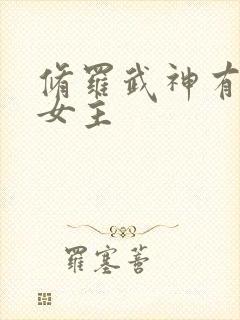 脩羅武神有
女主
羅塞菩